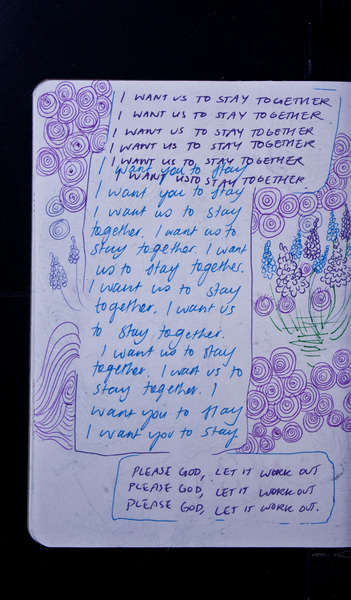 I WANT US TO STAY TOGETHER
I WANT US TO STAY TOGETHER
I WANT US TO STAY TOGETHER
I WANT US TO STAY TOGETHER
I WANT US TO STAY TOGETHER
I want you to stay
I WANT US TO STAY TOGETHER
I want you to stay
I want us to stay
together. I want us to
stay together. I want
us to stay together.
I want us to stay
together. I want us
to stay together.
I want us to stay
together. I want us to
stay together. I
want you to stay
I want you to stay
PLEASE GOD, LET IT WORK OUT
PLEASE GOD, LET IT WORK OUT
PLEASE GOD, LET IT WORK OUT.